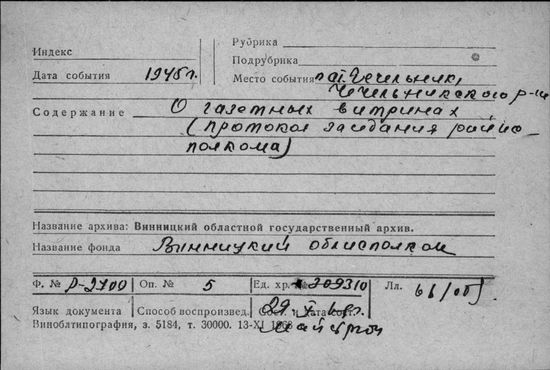 Индекс
Рубрика
Подрубрика
Дата события 1945г.
Место события пгт. Чечельник, Чечельникского р-на
Содержание О газетных витринах
(протокол заседания райис-
полкома)
Название архива: Винницкий областной государственный архив.
Название фонда Винницкий облисполком
Ф. № Р-2700 Оп. № 5 Ед. хр. 310 Лл. 66 (об)
Язык документа Способ воспроизвед. Сост. и дата сост.
29 X
Виноблтипография, з. 5184, т. 30000. 13-XI 1968